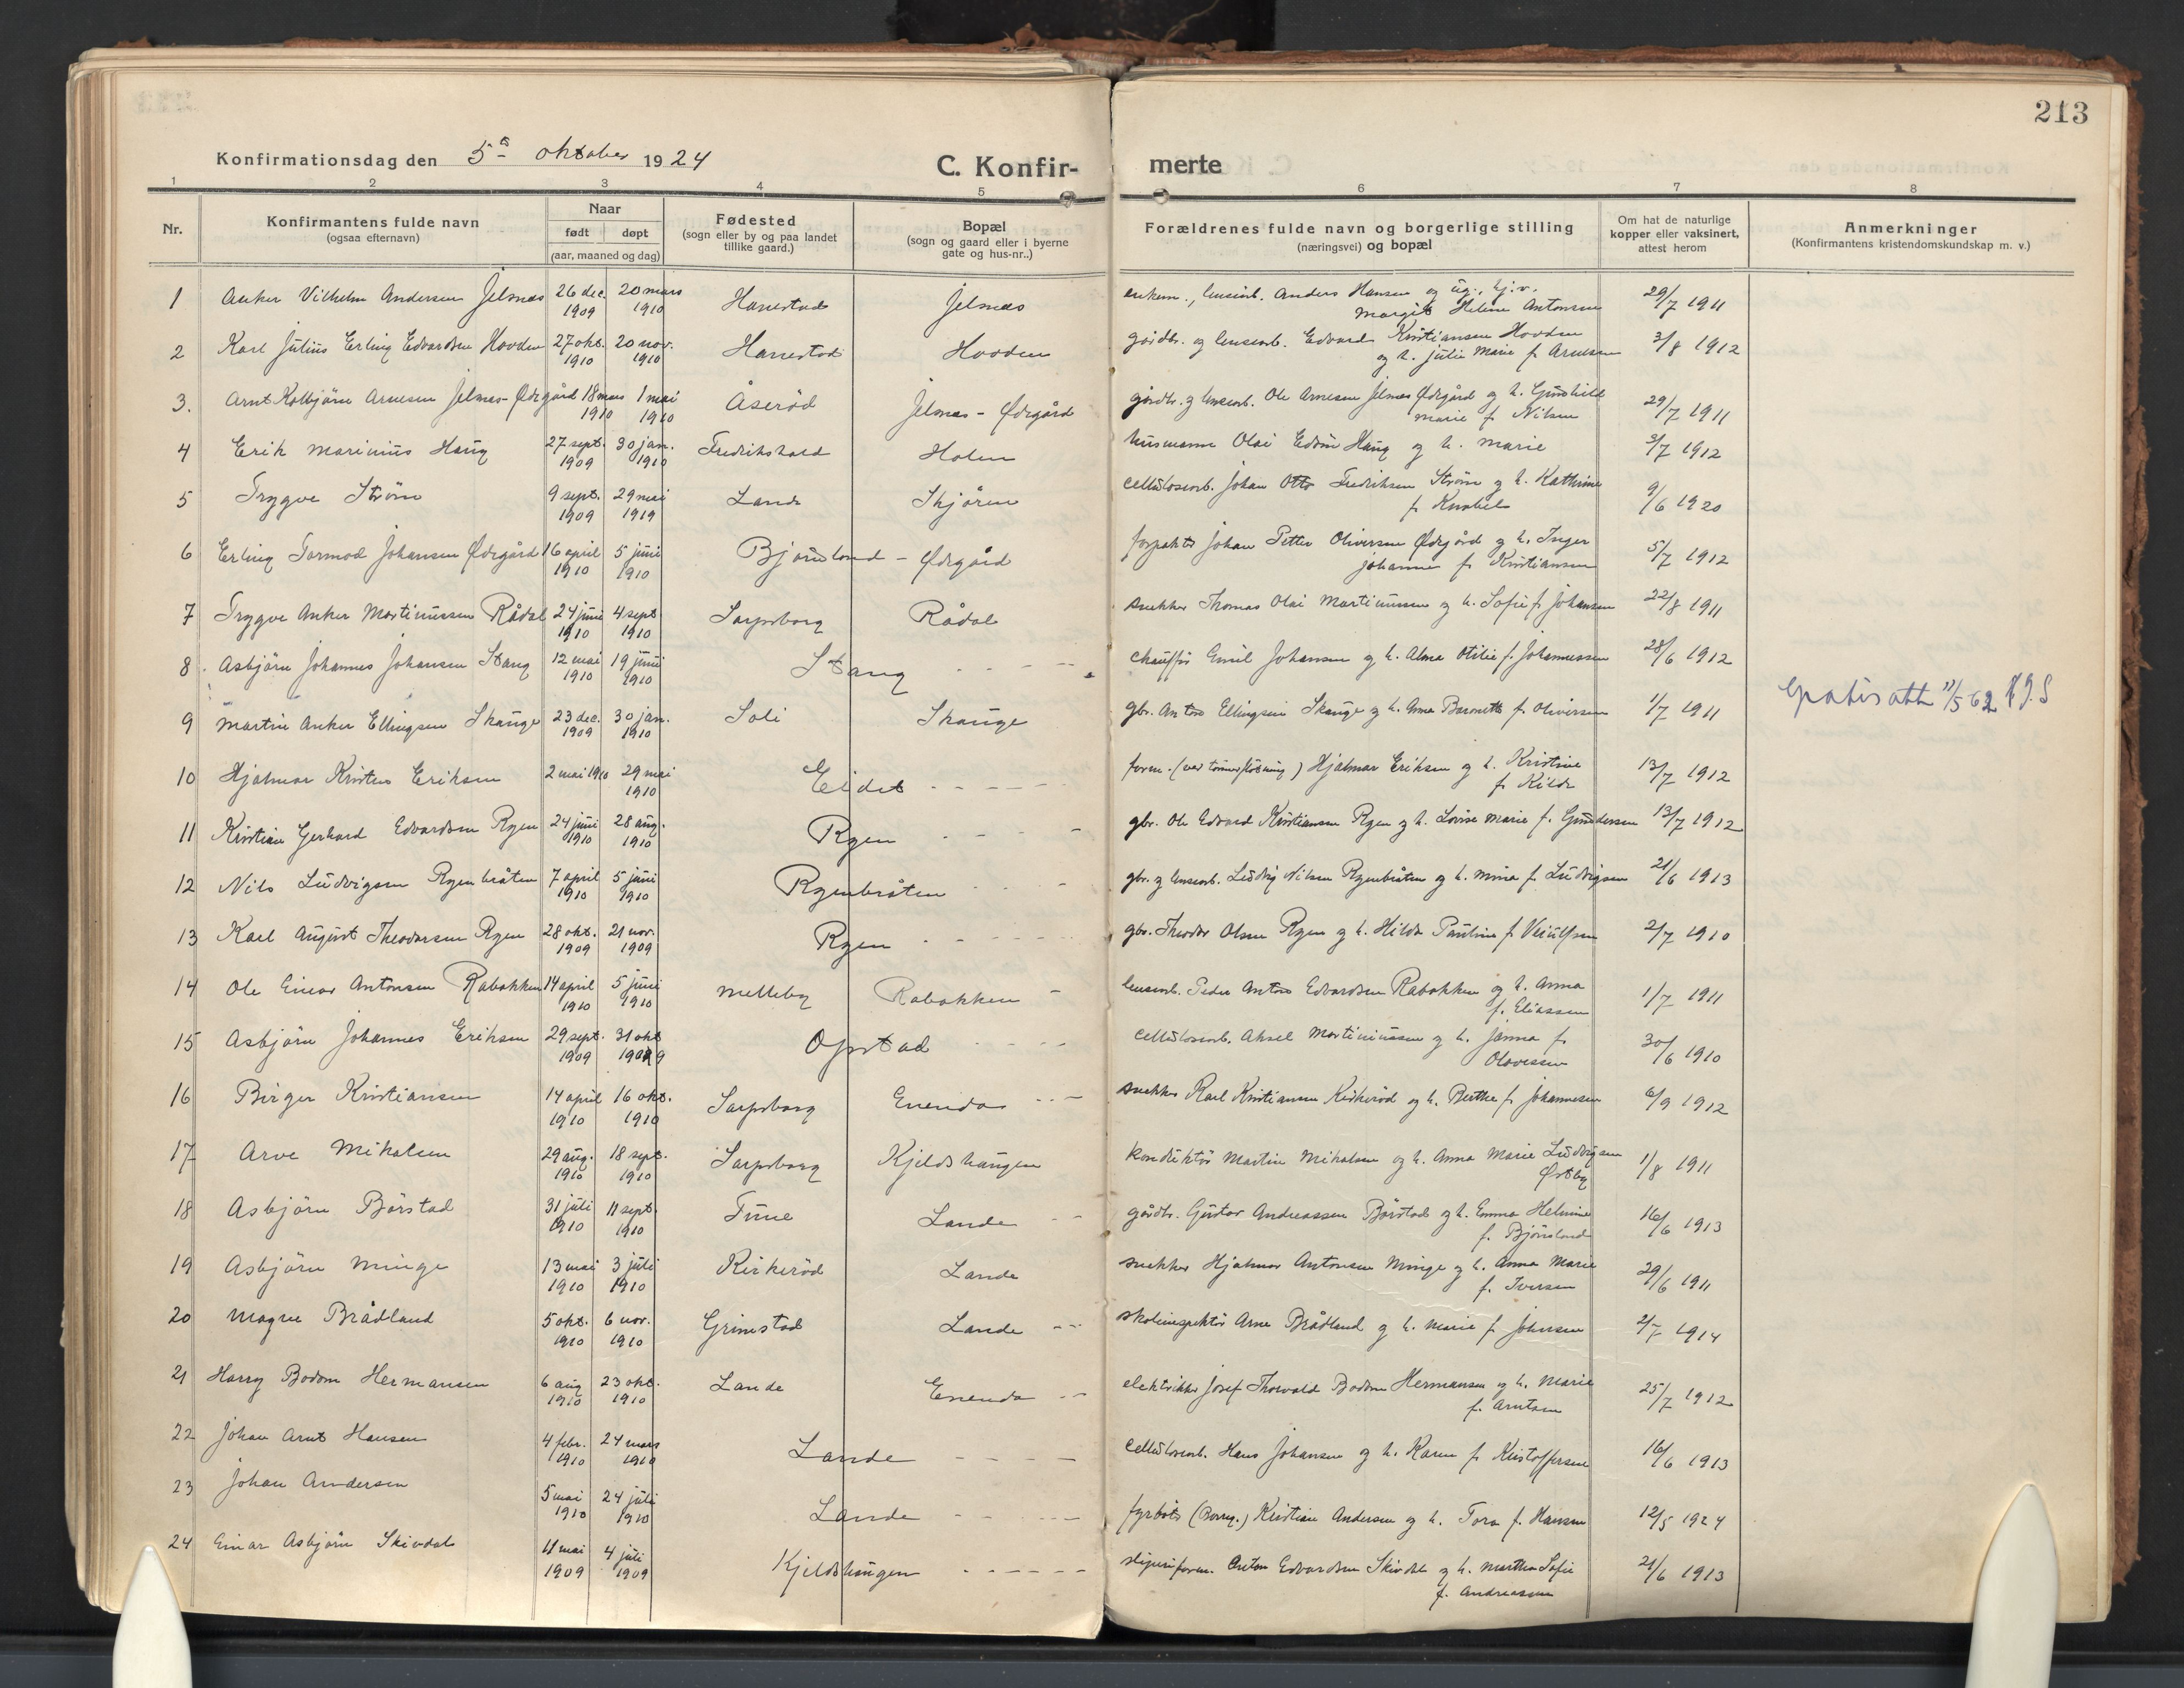 213
Konfirmationsdag den 5te oktober 1924
C. Konfir-
merte
1 2 3 4 5 6 7 8
Nr.
Konfirmantens fulde navn
(ogsaa efternavn)
Naar
født døpt
(aar, maaned og dag)
Fødested
(sogn eller by og paa landet
tillike gaard.)
Bopæl
(sogn og gaard eller i byerne
gate og hus-nr..)
Forældrenes fulde navn og borgerlige stilling
(næringsvei) og bopæl
Om hat de naturlige
kopper eller vaksinert,
attest herom
Anmerkninger
(Konfirmantens kristendomskundskap m. v.)
1 Anker Vilhelm Andersen Jelsnæs 26 dec. 1909 20 mars 1910 Hanestad Jelsnæs enkem., Anders Hansen og ug.
Margit Helene Antonsen 29/7 1911
2 Karl Julius Erling Edvardsen Hovden 27 okt. 1910 20 nov. 1910 Hanestad Hovden gårdbr. og Edvard Kristiansen Hovden
og h. Julie Marie f. Arnesen 3/8 1912
3. Arnt Kolbjörn Arnesen Jelsnæs-Ødegård 18 mars 1910 1 mai 1910 Åseröd Jelsnæs - Ødegård gårdbr. og Ole Arnesen Jelsnæs Ødegård og h. Gunhild
Marie f. Nilsen 29/7 1911
4 Erik Marinius Haug 27 sept. 1909 30 jan. 1910 Fredrikshald Holen husmann Olai Edvin Haug og h. Marie 2/7 1912
5 Trygve Ström 9 sept. 1909 29 mai 1919 Lande Skjören cellulosearb. Johan Otto Fredriksen Ström og h. Kathrine
f. Knobel 9/6 1920
6 Erling Tormod Johansen Ødegård 16 april 1910 5 juni 1910 Bjørnland - Ødegård forpakter Johan Petter Oliversen Ødegård og h. Inger
Johanne f. Kristiansen 5/7 1912
7 Trygve Anker Martinussen Rådal 24 juni 1910 4 sept. 1910 Sarpsborg Rådal snekker Thomas Olai Martinussen og h. Sofie f. Johansen 22/8 1911
8. Asbjörn Johannes Johansen Stang 12 mai 1910 19 juni 1910 Stang - - - - chauffør Emil Johansen og h. Alma Otilie f. Johannessen 28/6 1912
9 Martin Anker Ellingsen Skauge 23 dec. 1909 30 jan. 1910 Soli Skauge gbr. Anton Ellingsen Skauge og h. Anna f. Oliversen 1/7 1911 Gratis att 11/5 62
10 Hjalmar Kristen Eriksen 2 mai 1910 29 mai 1910 Eidet - - - - - - form. (ved tömmerflötning) Hjalmar Eriksen og h. Kristine
f. Kilde 13/7 1912
11 Kristian Gerhard Edvardsen Rygen 24 juni 1910 28 aug. 1910 Rygen - - - - gbr. Ole Edvard Kristiansen Rygen og h. Lovise Marie f. Gundersen 13/7 1912
12 Nils Ludvigsen Rygenbråten 7 april 1910 5 juni 1910 Rygenbråten - - - gbr. og Ludvig Nilsen Rygenbråten og h. Mina f. Ludvigsen 21/6 1913
13 Karl August Theodorsen Rygen 28 okt. 1909 21 nov. 1909 Rygen - - - - - gbr. Theodor Olsen Rygen og h. Hilda Pauline f. 2/7 1910
14 Ole Einar Antonsen Rabakken 14 april 1910 5 juni 1910 Melleby Rabakken - Peder Anton Edvardsen Rabakken og h. Anna
f. Eliassen 1/7 1911
15 Asbjörn Johannes Eriksen 29 sept. 1909 31 okt 1909 Opstad - - - - cellulosearb. Aksel Martiniussen og h. Janna f.
Olavessen 30/6 1910
16 Birger Kristiansen 14 april 1910 16 okt. 1910 Sarpsborg Enenda - - - snekker Karl Kristiansen Kirkeröd og h. Berthe f. Johannesen 6/9 1912
17 Arve Mikalsen 29 aug. 1910 18 sept. 1910 Sarpsborg Kjeldshaugen konduktör Martin Mikalsen og h. Anna Marie Ludvigsen
Østby 1/8 1911
18 Asbjörn Börstad 31 juli 1910 11 sept. 1910 Tune Lande - - gårdbr. Gustav Andreassen Börstad og h. Emma Helmine
f. Bjørnland 16/6 1913
19 Asbjörn Minge 13 mai 1910 3 juli 1910 Kirkeröd Lande snekker Hjalmar Antonsen Minge og h. Anna Marie
f. Iversen 29/6 1911
20 Magne Brådland 5 okt. 1910 6 nov. 1910 Grimstad Lande - - - skoleinspektör Arne Brådland og h. Marie f. Johnsen 1914
21 Harry Bodom Hermansen 6 aug 1910 23 okt. 1910 Lande Enenda - - elektriker Josef Thorvald Bodom Hermansen og h. Marie
f. Arntsen 25/7 1912
22 Johan Arnt Hansen 4 febr. 1910 24 mars 1910 Lande - - - - cellulosearb. Hans Johansen og h. Karen f. Kristoffersen 16/6 1913
23 Johan Andersen 5 mai 1910 24 juli 1910 Lande - - - - - fyrböter (Borreg.) Kristian Andersen og h. Tora f. Hansen 12/5 1924
24 Einar Asbjörn Skivdal 11 mai 1909 4 juli 1909 Kjeldshaugen - - - - - - sliperiform. Anton Edvardsen Skivdal og h. Marthe Sofie
f. Andreassen 21/6 1913